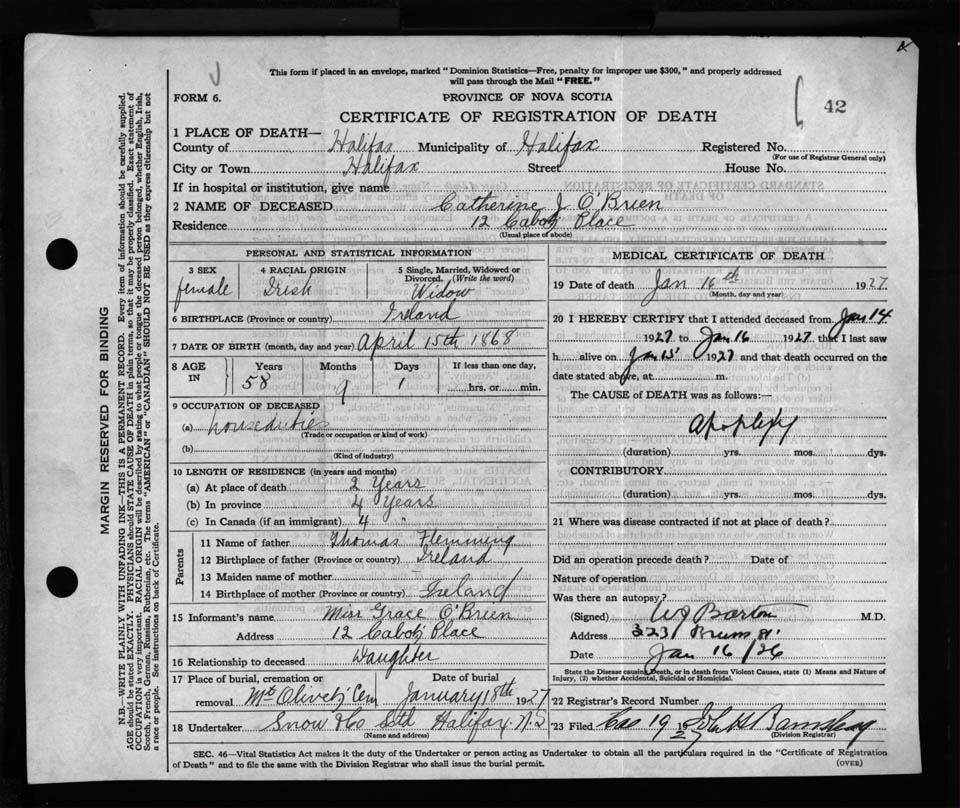 This form if placed in an envelope, marked "Dominion Statistics—Free, penalty for improper use $300," and properly addressed
will pass through the Mail "FREE."
FORM 6.
PROVINCE OF NOVA SCOTIA
42
CERTIFICATE OF REGISTRATION OF DEATH
1 PLACE OF DEATH—
County of Halifax Municipality of Halifax Registered No.
(For use of Registrar General only)
City or Town Halifax Street House No.
If in hospital or institution, give name
2 NAME OF DECEASED Catherine J O'Brien
Residence 12 Cabot Place
(Usual place of abode)
PERSONAL AND STATISTICAL INFORMATION
3 SEX 4 RACIAL ORIGIN 5 Single, Married, Widowed or
Divorced. (Write the word)
female Irish Widow
6 BIRTHPLACE (Province or country) Ireland
7 DATE OF BIRTH (month, day and year) April 15th 1868
8 AGE IN Years Months Days If less than one day,
58 9 1 hrs. or min.
9 OCCUPATION OF DECEASED
(a) houseduties
(Trade or occupation or kind of work)
(b)
(Kind of industry)
10 LENGTH OF RESIDENCE (in years and months)
(a) At place of death 2 Years
(b) In province 4 Years
(c) In Canada (if an immigrant) 4 "
Parents
11 Name of father Thomas Flemming
12 Birthplace of father (Province or country) Ireland
13 Maiden name of mother
14 Birthplace of mother (Province or country) Ireland
15 Informant's name Miss Grace O'Brien
Address 12 Cabot Place
16 Relationship to deceased Daughter
17 Place of burial, cremation or Date of burial
removal Mt Olivet Cem January 18th 1927
18 Undertaker Snow & Co Ltd Halifax N.S
(Name and address)
MEDICAL CERTIFICATE OF DEATH
19 Date of death Jan 16th 1927
(Month, day and year)
20 I HEREBY CERTIFY that I attended deceased from Jan 14
1927 to Jan 16 1927, that I last saw
h alive on Jan 15 1927 and that death occurred on the
date stated above, at m.
The CAUSE of DEATH was as follows:—
Apoplexy
(duration) yrs. mos. dys.
CONTRIBUTORY
(duration) yrs. mos. dys.
21 Where was disease contracted if not at place of death?
Did an operation precede death? Date of
Nature of operation
Was there an autopsy?
(Signed) W J Barton M.D.
Address 323 Bruns St.
Date Jan 16/26
State the Disease causing Death, or in death from Violent Causes, state (1) Means and Nature of
Injury, (2) whether Accidental, Suicidal or Homicidal.
22 Registrar's Record Number
23 Filed 19
(Division Registrar)
SEC. 46—Vital Statistics Act makes it the duty of the Undertaker or person acting as Undertaker to obtain all the particulars required in the "Certificate of Registration
of Death" and to file the same with the Division Registrar who shall issue the burial permit.
(OVER)
MARGIN RESERVED FOR BINDING
N.B.—WRITE PLAINLY WITH UNFADING INK—THIS IS A PERMANENT RECORD. Every item of information should be carefully supplied.
AGE should be stated EXACTLY. PHYSICIANS should STATE CAUSE OF DEATH in plain terms, so that it may be properly classified. Exact statement of
OCCUPATION is very important. RACIAL ORIGIN will be described by stating to what people or tongue the deceased person belonged, whether English, Irish,
Scotch, French, German, Russian, Ruthenian, etc. The terms "AMERICAN" or "CANADIAN" SHOULD NOT BE USED as they express citizenship but not
a race or people. See instructions on back of Certificate.